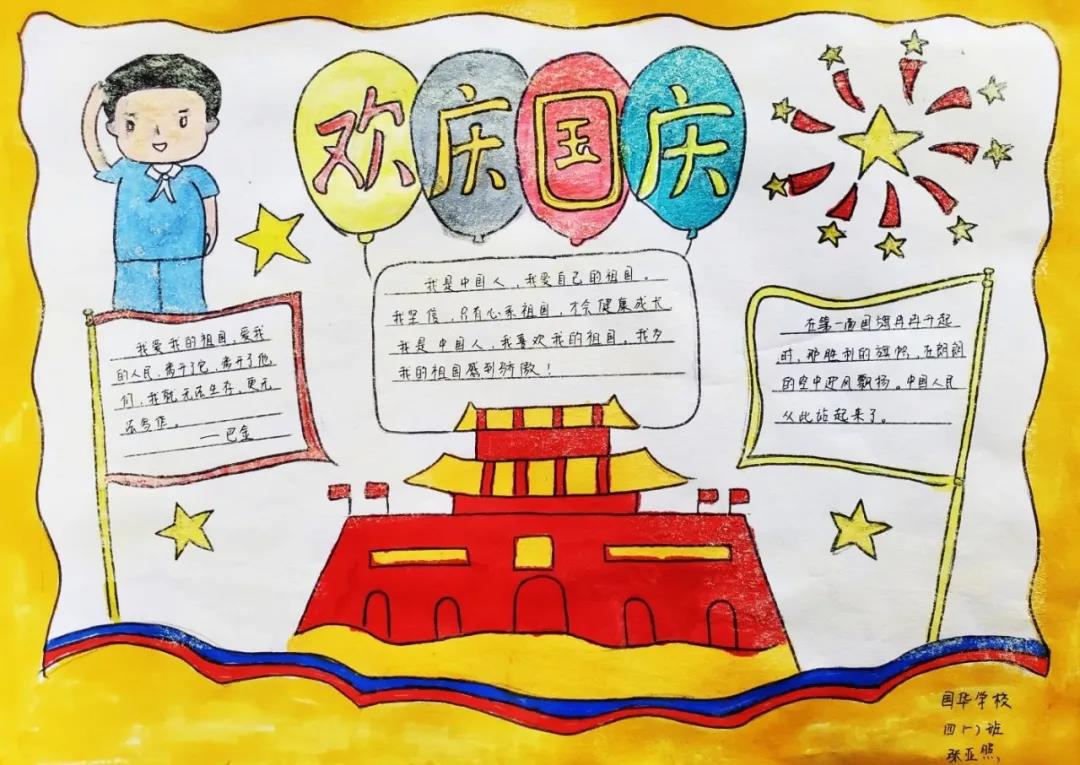 欢庆国庆
我是中国人，我爱自己的祖国。
我坚信，只有心系祖国，才会健康成长
我是中国人，我喜欢我的祖国，我为
我的祖国感到骄傲！
我爱我的祖国，爱我
的人民，离开了它，离开了他
们，我就无法生存，更无
法写作。
——巴金
在第一面国旗冉冉升起
时，那胜利的旗帜，在朗朗
的空中迎风飘扬。中国人民
从此站起来了。
国华学校
四(一)班
张亚熙